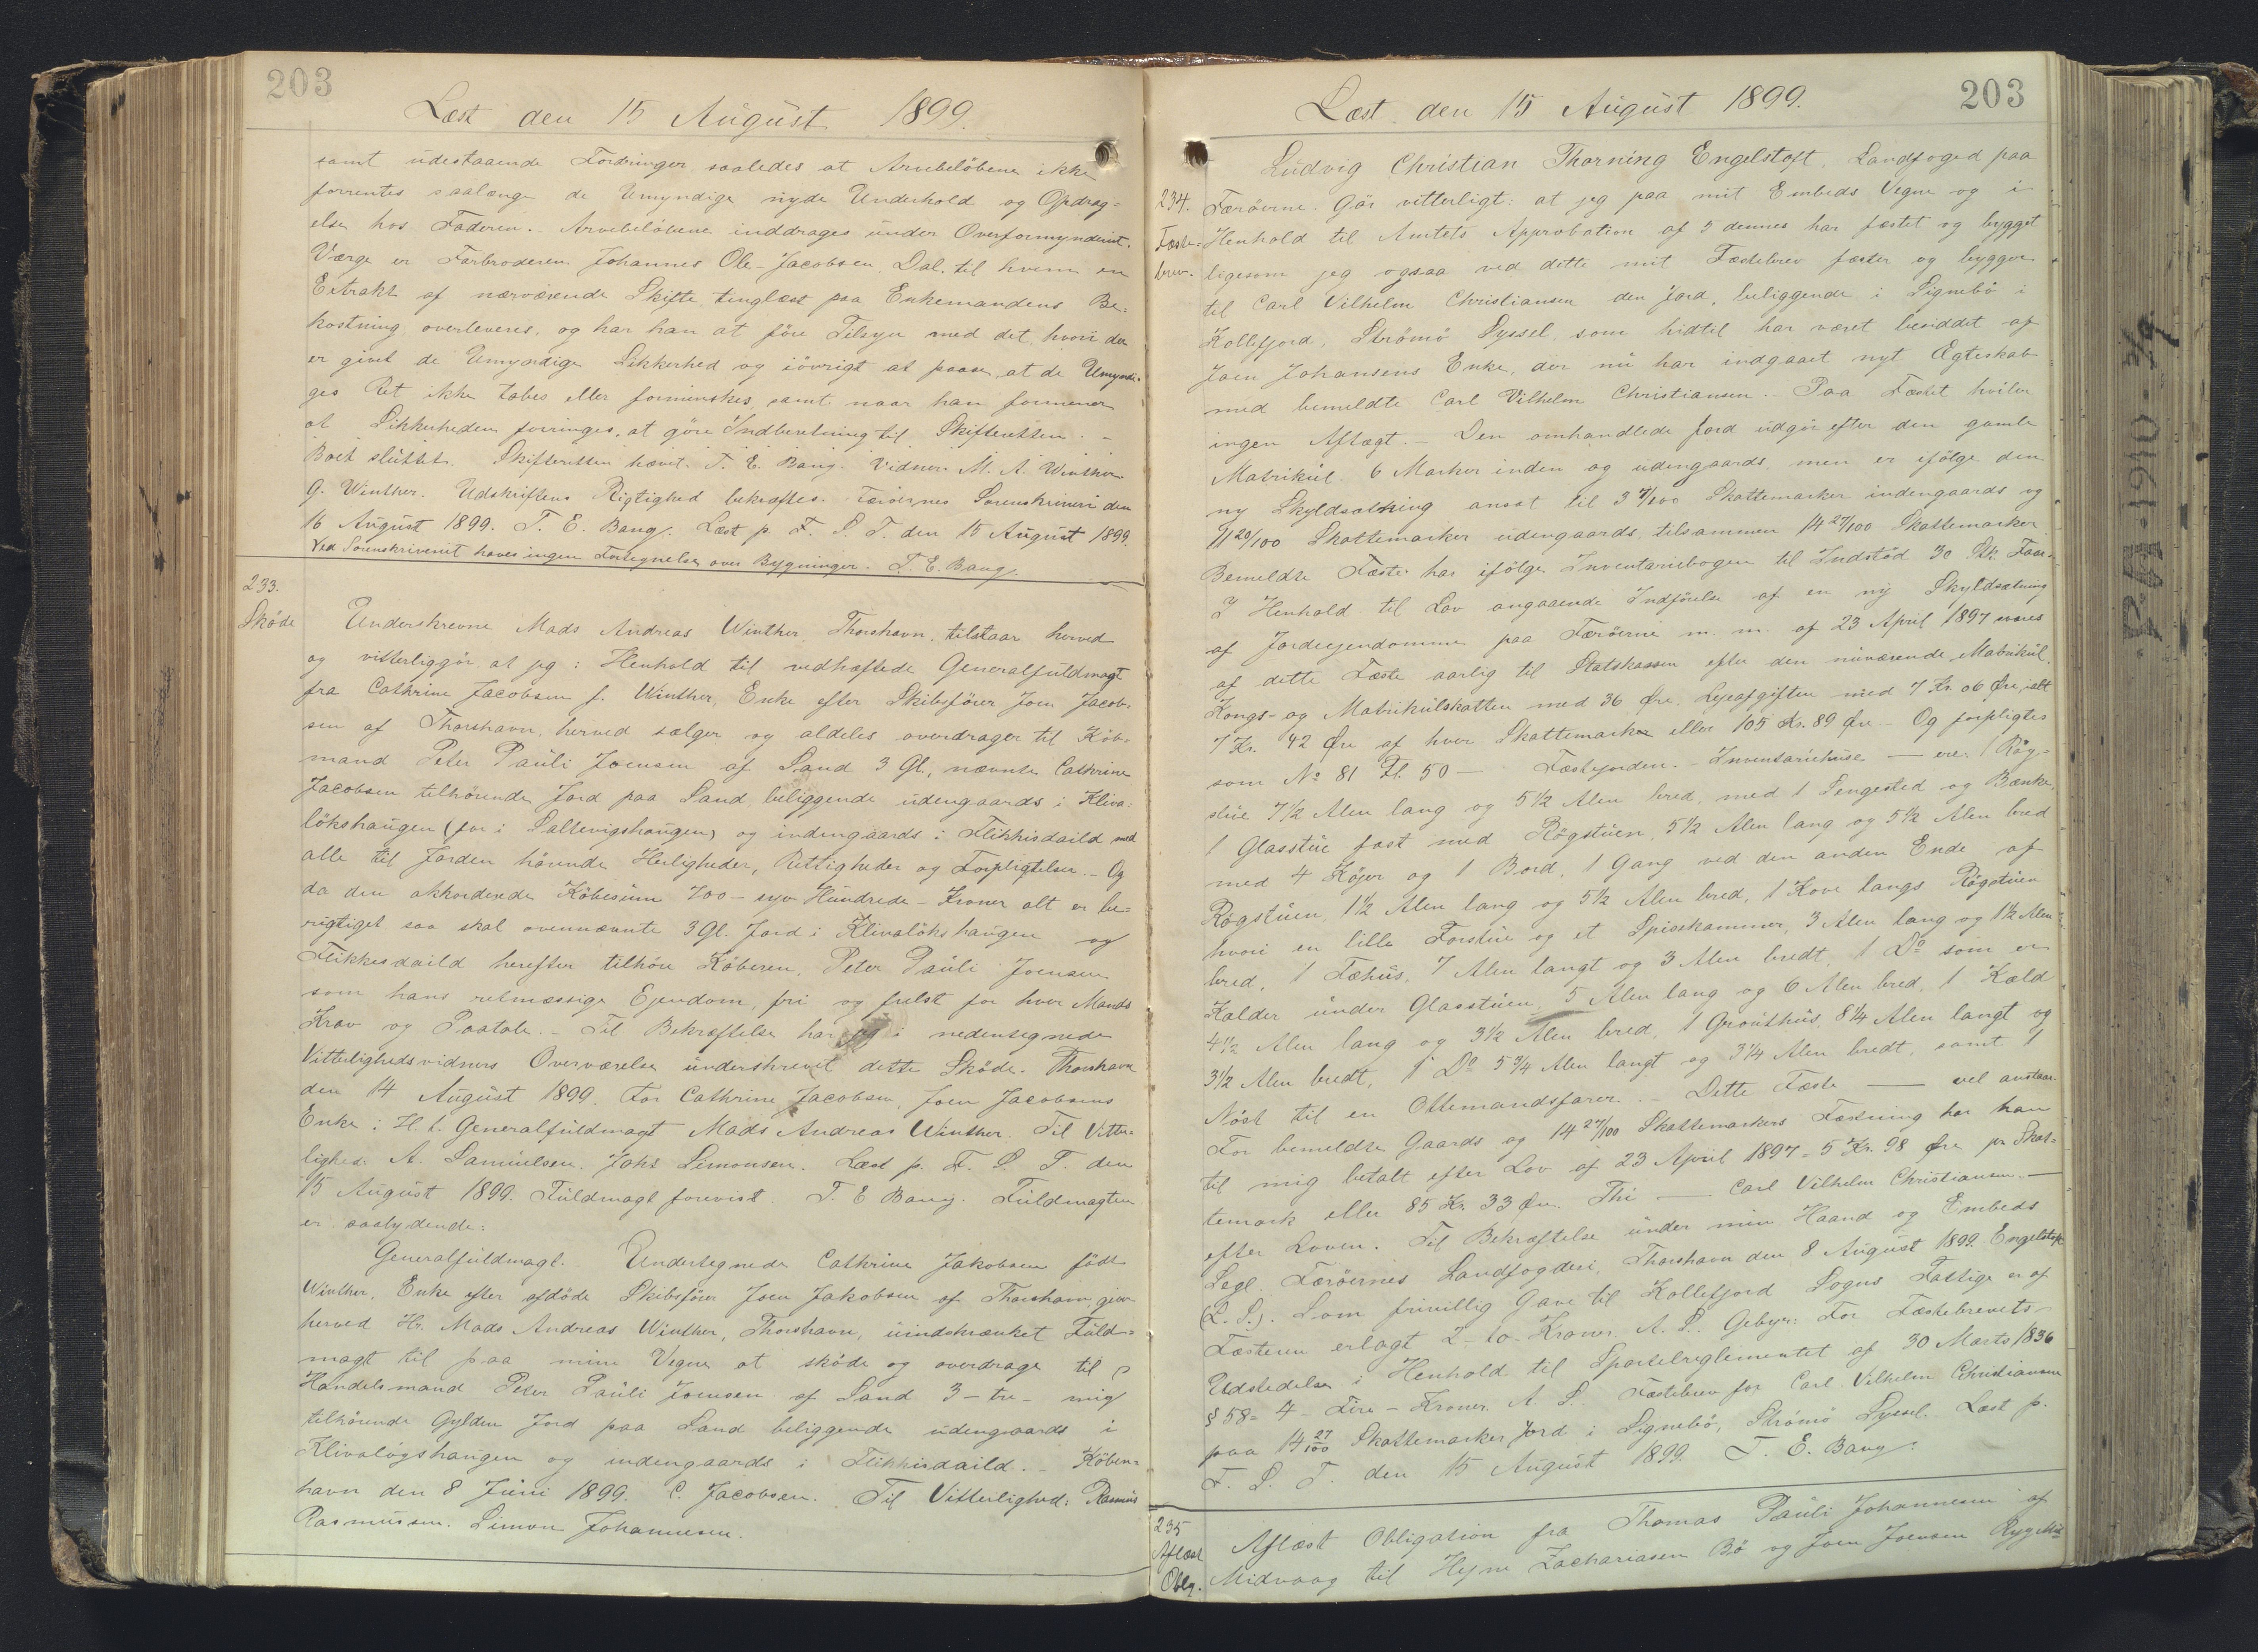 203
Læst den 15 August 1899.
samt udestaaende Fordringer saaledes at Arvebelöbene ikke
forrentes saalænge de Umyndige nyde Underhold og Opdrag-
else hos Faderen. - Arvebelöbene inddrages under Overformynderiet.
Værge er Farbroderen Johannes Ole-Jacobsen, Dal, til hvem en
Extrakt af nærværende Skifte tinglæst paa Enkemandens Be-
kostning overleveres, og har han at före Tilsyn med det, hvori der
er givet de Umyndige Sikkerhed og iövrigt at paase, at de Umyndi-
ges Ret ikke tabes eller forminskes, samt naar han formener
at Sikkerheden forringes, at göre Indberetning til Skifteretten. -
Boet sluttet. Skifteretten hævet. T. E. Bang. Vidner: M. A. Winther
G. Winther. Udskriftens Rigtighed bekræftes. Færöernes Sorenskriveri den
16 August 1899. T. E. Bang. Læst p. F. S. T. den 15 August 1899.
Ved Sorenskriveriet haves ingen Fortegnelse over Bygninger. T. E. Bang.
233.
Sköde
Underskrevne Mads Andreas Winther, Thorshavn, tilstaar herved
og vitterliggör at jeg i Henhold til vedhæftede Generalfuldmagt
fra Cathrine Jacobsen f. Winther, Enke efter Skibsförer Joen Jacob-
sen af Thorshavn, herved sælger og aldeles overdrager til Köb-
mand Peter Pauli Joensen af Sand 3 Gl., nævnte Cathrine
Jacobsen tilhörende Jord paa Sand, beliggende udengaards i Kliva-
lökshaugen (för i Saltevigshaugen) og indengaards i Flikkisdaild med
alle til Jorden hörende Herligheder, Rettigheder og Forpligtelser. - Og
da den akkorderede Köbesum 700 - syv Hundrede - Kroner alt er be-
rigtiget saa skal ovennævnte 3 Gl. Jord i Klivalökshaugen og
Flikkesdaild herefter tilhöre Köberen, Peter Pauli Joensen
som hans retmæssige Ejendom, fri og frelst for hver Mands
Krav og Paatale. - Til Bekræftelse har jeg i nedentegnede
Vitterlighedsvidners Overværelse underskrevet dette Sköde. Thorshavn
den 14 August 1899. For Cathrine Jacobsen, Joen Jacobsens
Enke i H. t. Generalfuldmagt Mads Andreas Winther. Til Vitter-
lighed: A. Samuelsen. Johs Simonsen. Læst p. F. S. T. den
15 August 1899. Fuldmagt forevist. T. E. Bang. Fuldmagten
er saalydende:
Generalfuldmagt. Undertegnede Cathrine Jakobsen födt
Winther, Enke efter afdöde Skibsförer Joen Jakobsen af Thorshavn, giver
herved Hr. Mads Andreas Winther, Thorshavn, uindskrænket Fuld-
magt til paa mine Vegne at sköde og overdrage til
Handelsmand Peter Pauli Joensen af Sand 3 - tre - mig
tilhörende Gylden Jord paa Sand beliggende udengaards i
Klivalögshaugen og indengaards i Flikkisdaild. - Köben-
havn den 8 Juni 1899. C. Jacobsen. Til Vitterlighed: Rasmus
Rasmussen. Simon Johannesen.
203
Læst den 15 August 1899.
Ludvig Christian Thorning Engelstoft, Landfoged paa
234.
Fæste-
brev.
Færöerne. Gör vitterligt: at jeg paa mit Embeds Vegne og i
Henhold til Amtets Approbation af 5 dennes har fæstet og bygget
ligesom jeg ogsaa ved dette mit Fæstebrev fæster og bygger
til Carl Vilhelm Christiansen den Jord, beliggende i Signebö i
Kollefjord, Strömö Syssel, som hidtil har været besiddet af
Joen Johansens Enke, der nu har indgaaet nyt Ægteskab
med bemeldte Carl Vilhelm Christiansen. Paa Fæstet hviler
ingen Aftægt. - Den omhandlede Jord udgör efter den gamle
Matrikul 6 Marker inden og udengaards, men er ifölge den
ny Skyldsætning ansat til 3 7/100 Skattemarker indengaards og
11 20/100 Skattemarker udengaards, tilsammen 14 27/100 Skattemarker
Bemeldte Fæste har ifölge Inventariebogen til Indstöd 30 Stk. Faar.
I Henhold til Lov angaaende Indförelse af en ny Skyldsætning
af Jordeejendomme paa Færöerne m. m. af 23 April 1897 svares
af dette Fæste aarlig til Statskassen efter den nuværende Matrikul.
Kongs- og Matrikulskatten med 36 Øre, Lejeafgiften med 7 Kr. 06 Øre, ialt
7 Kr. 42 Øre af hver Skattemark eller 105 Kr. 89 Øre. - Og forpligtes
som No 81 Fl. 50 — Fæstejorden. - Inventariehuse — ere: 1 Rög-
stue 7 1/2 Alen lang og 5 1/2 Alen bred, med 1 Sengested og Bænke,
1 Glasstue fast med Rögstuen, 5 1/2 Alen lang og 5 1/2 Alen bred
med 4 Köjer og 1 Bord, 1 Gang ved den anden Ende af
Rögstuen, 1 1/2 Alen lang og 5 1/2 Alen bred, 1 Kove langs Rögstuen
hvori en lille Forstue og et Spisekammer, 3 Alen lang og 1 1/2 Alen
bred, 1 Fæhus, 7 Alen langt og 3 Alen bredt, 1 Do som er
Kælder under Glasstuen, 5 Alen lang og 6 Alen bred, 1 Kæld
4 1/2 Alen lang og 3 1/2 Alen bred, 1 Grouthus, 8 1/4 Alen langt og
3 1/2 Alen bredt, 1 Do 5 3/4 Alen langt og 3 1/4 Alen bredt, samt 1
Nöst til en Ottemandsfarer. - Dette Fæste — vel anstaar.
For bemeldte Gaards og 14 27/100 Skattemarkers Fæstning har han
til mig betalt efter Lov af 23 April 1897 - 5 Kr. 98 Øre pr Skat-
temark eller 85 Kr. 33 Øre. Thi — Carl Vilhelm Christiansen. —
efter Loven. Til Bekræftelse under min Haand og Embeds
Segl. Færöernes Landfogderi, Thorshavn den 8 August 1899. Engelstoft
(L. S.). Som frivillig Gave til Kollefjord Sogns Fattige er af
Fæsteren erlagt 2 - to - Kroner. A. S. Gebyr: For Fæstebrevets
Udstedelse i Henhold til Sportelreglementet af 30 Marts 1836
§ 58 = 4 - Fire - Kroner. A. S. Fæstebrev for Carl Vilhelm Christiansen
paa 14 27/100 Skattemarker Jord i Signebö, Strömö Syssel. Læst p.
F. S. T. den 15 August 1899. T. E. Bang.
235
Aflæst
Oblg.
Aflæst Obligation fra Thomas Pauli Johannesen af
Midvaag til Hejne Zachariasen Bö og Joen Joensen Ryg